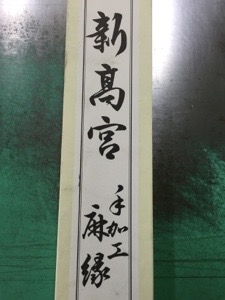 新髙宮
手加工
麻縁